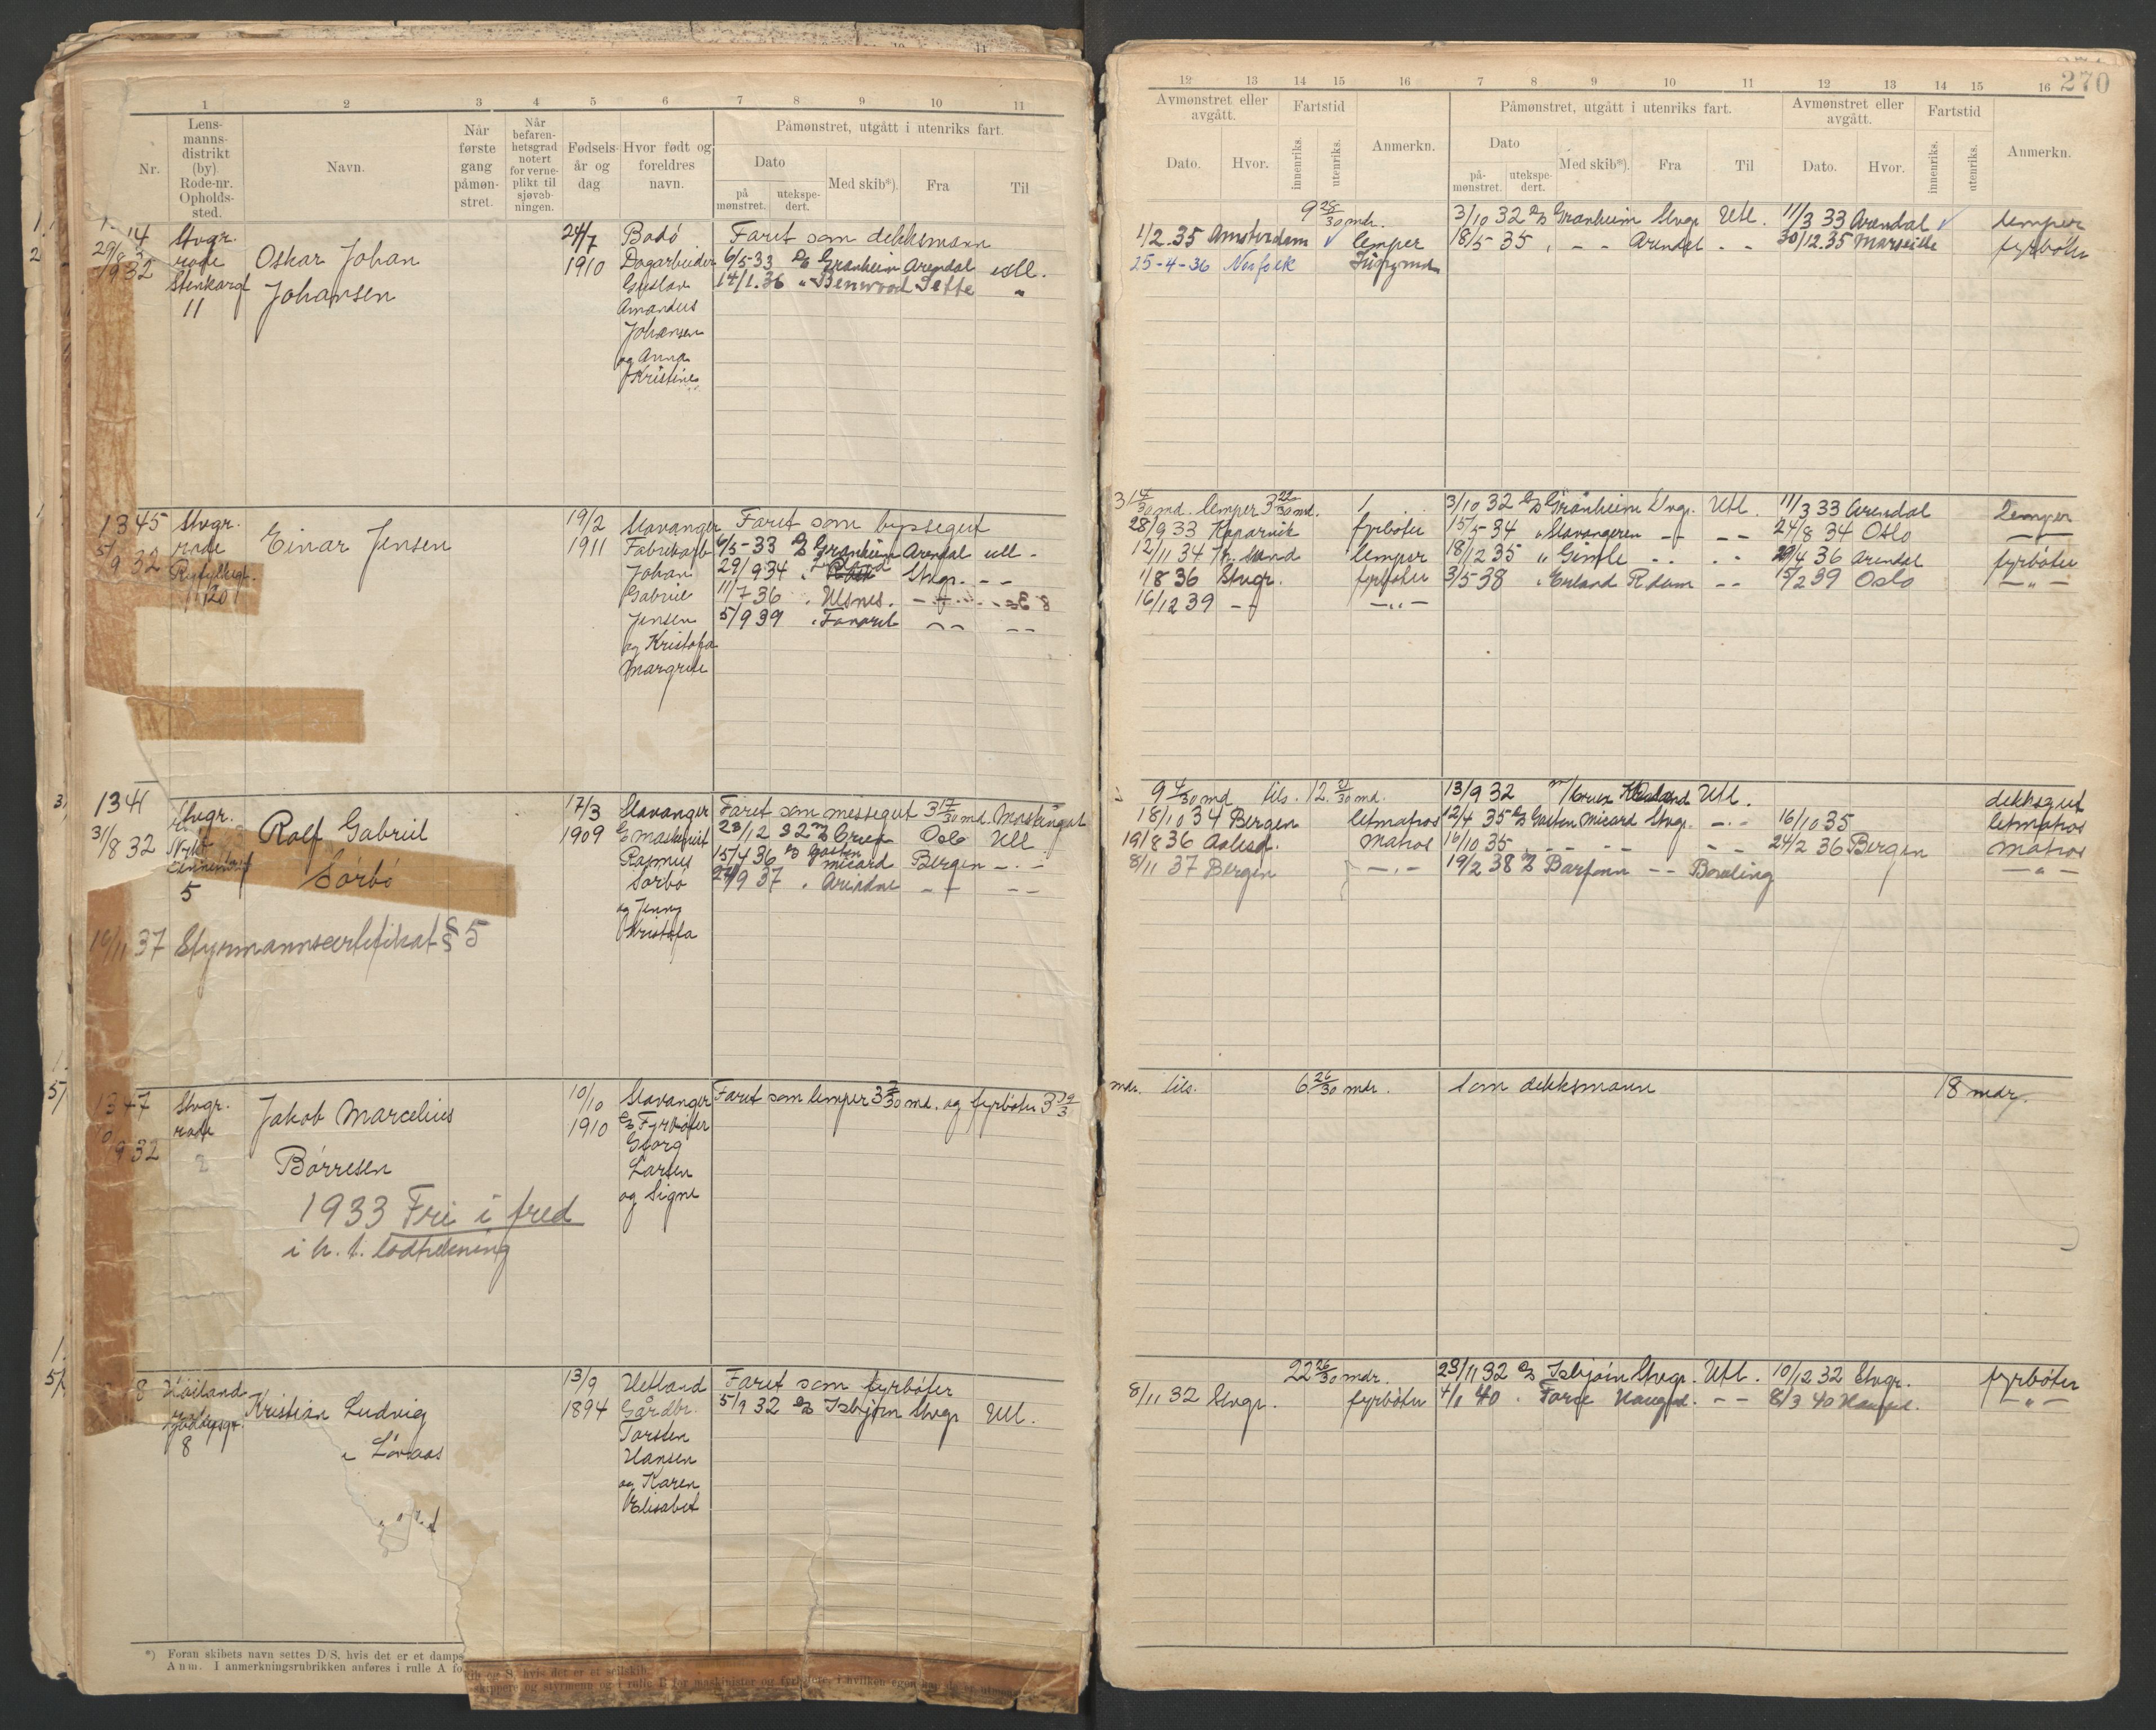 270
1 2 3 4 5 6 7 8 9 10 11
12 13 14 15 16 7 8 9 10 11 12 13 14 15 16
Nr.
Lens-
manns-
distrikt
(by)
Rode-nr.
Opholds-
sted.
Navn.
Når
første
gang
påmøn-
stret.
Når
befaren-
hetsgrad
notert
for verne-
plikt til
sjøvæb-
ningen.
Fødsels-
år og
dag
Hvor født og
foreldres
navn.
Påmønstret, utgått i utenriks fart.
Dato
på
mønstret.
utekspe-
dert.
Med skib*).
Fra
Til
Avmønstret eller
avgått.
Dato.
Hvor.
Fartstid
innenriks.
utenriks.
Anmerkn.
Påmønstret, utgått i utenriks fart.
Dato
på-
mønstret.
utekspe-
dert.
Med skib*).
Fra
Til
Avmønstret eller
avgått.
Dato.
Hvor.
Fartstid
innenriks.
utenriks.
Anmerkn.
Stvgr.
rode
11
Oskar Johan
Johansen
24/7
1910
Bodö
Dagarbeider
Gustav
Amandus
Johansen
og Anna
Kristine
Faret som dekksmann
6/5-33 Granheim Arendal utl.
14/1.36 " Benwood Sette "
9 28/30 mdr. 3/10 32 Granheim Stvgr. Utl. 11/3 33 Arendal lemper
1/2.35 Amsterdam lemper 18/5 35 " - - Arendal - - 30/12.35 Marseille fyrböter
25-4-36 Norfolk
1345
5/9 32
Stvgr.
rode
Ryfylkegt.
120
Einar Jensen
19/2
1911
Stavanger
Fabrikarb
Johan
Gabriel
Jensen
og Kristofa
Margrete
Faret som byssegut
6/5-33 Granheim Arendal utl -
29/9 34 Stvgr. - -
11/7 36 " Ulsnes.
5/9 39 " Favorit - - - -
lemper 3 22/30 md. 3/10 32 Granheim Stvgr. Utl. 11/3 33 Arendal lemper
28/9 33 Kopervik fyrböter 15/5-34 " Stavangeren - - - - 24/8 34 Oslo
12/11 34 Kr. sund lemper 18/12 35 " Gimle 29/4 36 Arendal fyrböter
1/8 36 Stvgr. fyrböter 3/5-38 " Erland R.dam - - 15/2 39 Oslo - " -
16/12 39 - - - " -
134
31/8 32
Stvgr.
5
Rolf Gabriel
Sörbö
17/3
1909
Stavanger
Rasmus
Sörbö
og Jenny
Kristofa
Faret som messegut 3 17/30 md.
23/12 32 Crux Oslo Utl
15/4 36 Gaston
Micard Bergen - . -
24/9 37 " Ariadne - - - -
10/11 37 Styrmannscertifikat § 5
9 4/30 md tils. 12. 21/30 md. 13/9 32 m/ Crux Utl. dekksgut
18/10 34 Bergen letmatros 12/4 35 Gaston Micard Stvgr. - . - 16/10 35 letmatros
19/8 36 Aalesd. Matros 16/10 35 - - - - - - 24/2 36 Bergen Matros
8/11 37 Bergen - . - 19/2 38 Barfonn - - Bowling - " -
1347
9 32
Stvgr.
rode
2
Jakob Marcelius
Børresen
1933 Fri i fred
i h. t. lodtrekning
10/10
1910
Stavanger
Fyrböter
Georg
Larsen
og Signe
Faret som lemper 3 3/30 md. og fyrböter 3
mdr. tils. 6 26/30 mdr. Som dekksmann 18 mdr.
8
Höiland
8
Kristian Ludvig
Lövaas
13/9
1894
Hetland
Gårdbr.
Torsten
Hansen
og Karen
Elisabet
Faret som fyrböter
5/9 32 Isbjörn Stvgr Utl.
22 26/30 mdr. 23/11 32 Isbjörn Stvgr. Utl. 10/12 32 Stvgr. fyrböter
8/11 32 Stvgr. fyrböter 4/1 40 " Force Haugsd. - - 8/3 40 Haugsd. - " -
*) Foran skibets navn settes D/S, hvis det er et damps
ib og S, hvis det er et seilskib.
Anm. I anmerkningsrubrikken anføres i rulle A fo
skippere og styrmenn og i rulle B for maskinister og fyrbøtere, i hvilken egenskap